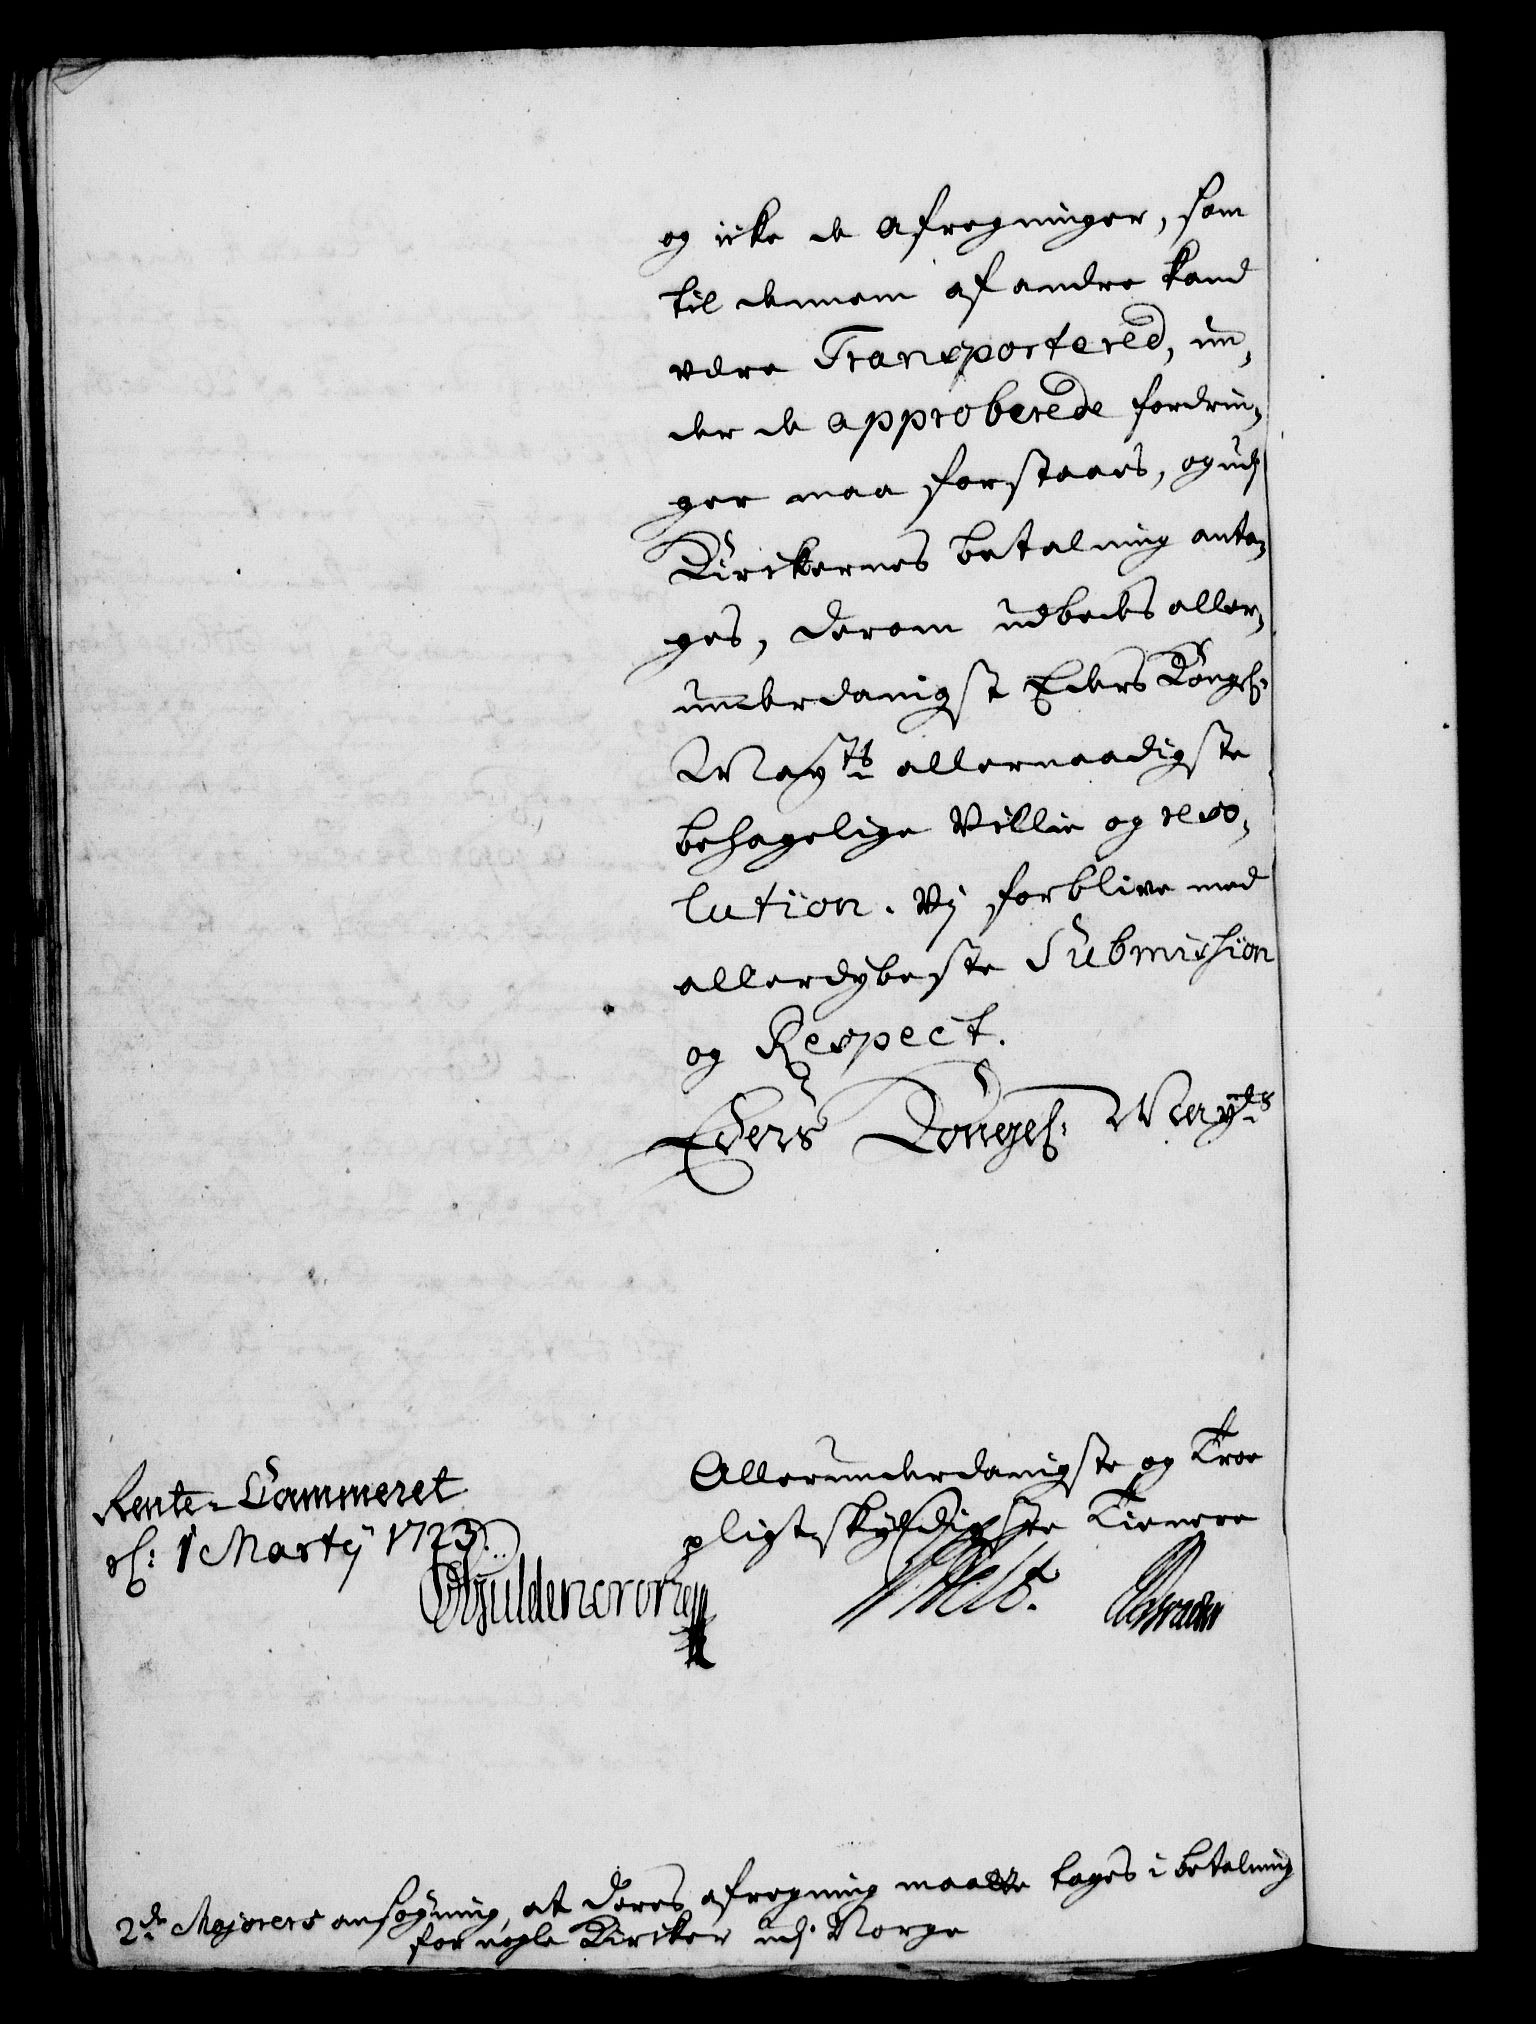 og icke de Afregninger, som
til dennem af andre kand
være Transportered, un,
der de approberede fordrin,
ger maa forstaaes, og udj
Kirckernes betalning anta,
ges, derom udbedes aller,
underdanigst Eders Kongel:
Mayts allernaadigste
behagelige Villie og reso,
lution. Vj forblive med
allerdybeste Submission
og Respect.
Eders Kongel: Mayts
Allerunderdanigste og Troe
pligtskyldigste Tienere
Rente-Cammeret
d: 1 Martij 1723.
Guldencrone
2de Majorers ansøgning, at deres afregning maatte tages i betalning
for nogle Kircker udj Norge